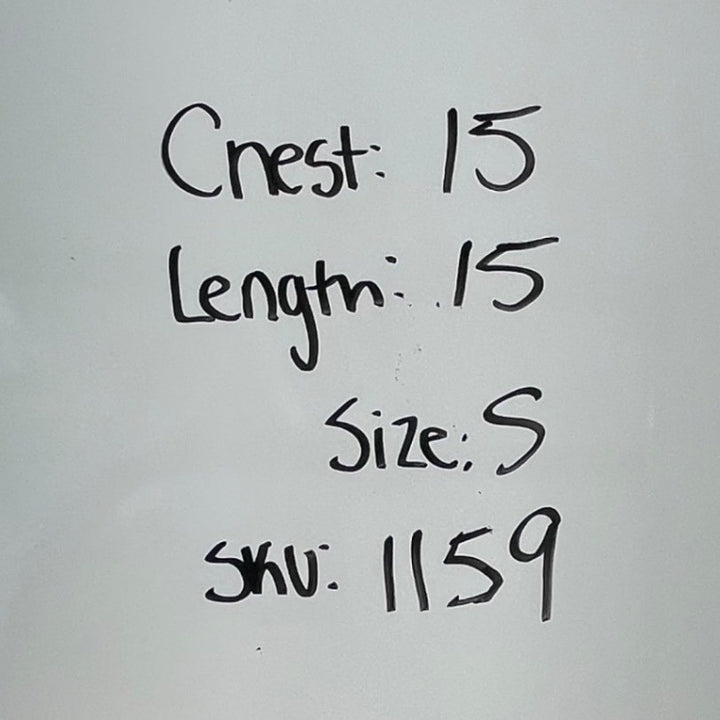 Chest: 15
Length: 15
Size: S
SKU: 1159